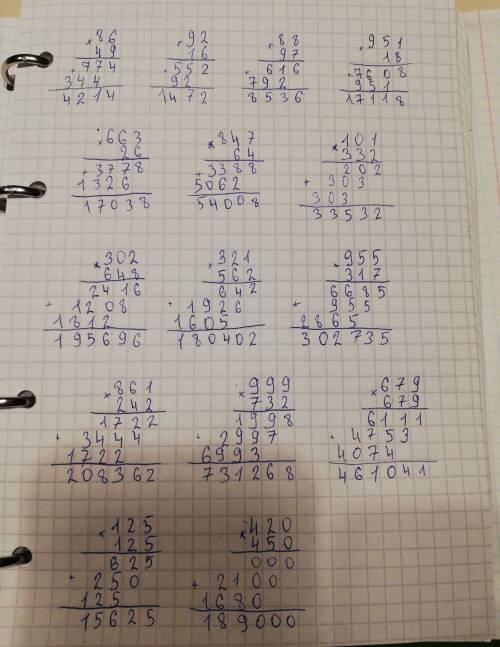 ×86 ×92 ×88 ×951
49 16 97 18
774 552 616 7608
+344 +92 +792 +951
4214 1472 8536 17118
×663 ×847 ×101
26 64 332
+3778 +3388 202
1326 5062 +303
17038 54008 303
33532
×302 ×321 ×955
648 562 317
2416 642 6685
+1208 +1926 +955
1812 1605 2865
195696 180402 302735
×861 ×999 ×679
242 732 679
1722 1998 6111
+3444 +2997 +4753
1722 6993 4074
208362 731268 461041
×125 ×420
125 450
625 000
+250 +2100
125 1680
15625 189000